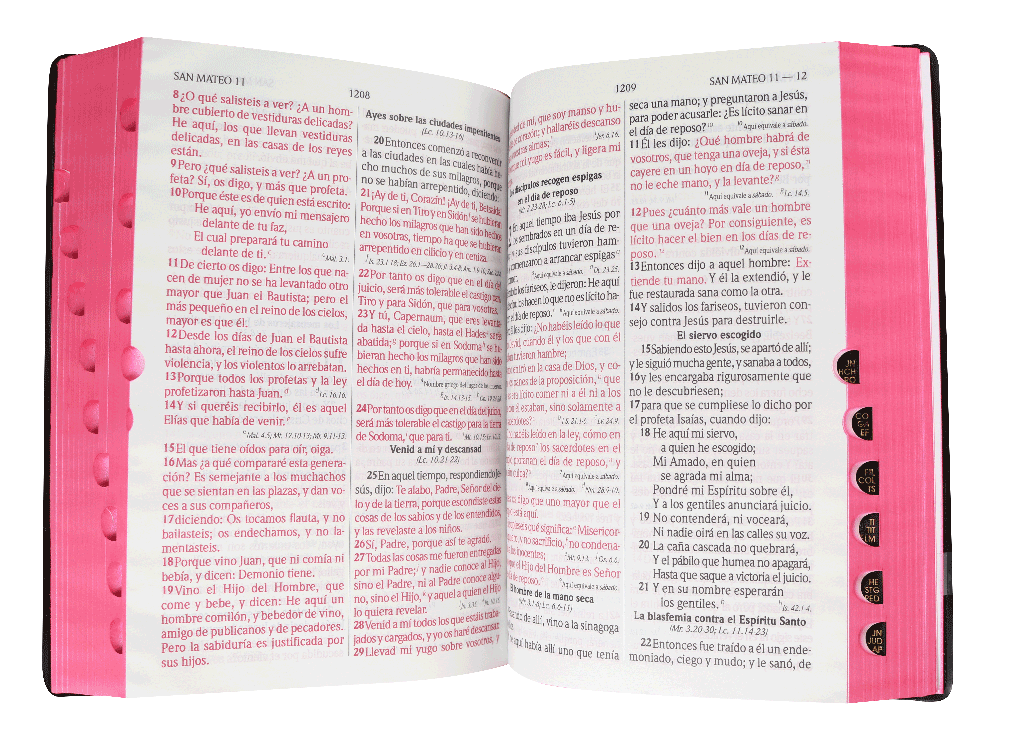 SAN MATEO 11
1208
8¿O qué salisteis a ver? ¿A un hom-
bre cubierto de vestiduras delicadas?
He aquí, los que llevan vestiduras
delicadas, en las casas de los reyes
están.
9Pero ¿qué salisteis a ver? ¿A un pro-
feta? Sí, os digo, y más que profeta.
10Porque éste es de quien está escrito:
He aquí, yo envío mi mensajero
delante de tu faz,
El cual preparará tu camino
delante de ti.
Mal. 3.1.
11De cierto os digo: Entre los que na-
cen de mujer no se ha levantado otro
mayor que Juan el Bautista; pero el
más pequeño en el reino de los cielos,
mayor es que él.
12Desde los días de Juan el Bautista
hasta ahora, el reino de los cielos sufre
violencia, y los violentos lo arrebatan.
13Porque todos los profetas y la ley
profetizaron hasta Juan.
Lc. 16.16.
14Y si queréis recibirlo, él es aquel
Elías que había de venir.
Mal. 4.5; Mt. 17.10-13; Mr. 9.11-13.
15El que tiene oídos para oír, oiga.
16Mas ¿a qué compararé esta genera-
ción? Es semejante a los muchachos
que se sientan en las plazas, y dan vo-
ces a sus compañeros,
17diciendo: Os tocamos flauta, y no
bailasteis; os endechamos, y no la-
mentasteis.
18Porque vino Juan, que ni comía ni
bebía, y dicen: Demonio tiene.
19Vino el Hijo del Hombre, que
come y bebe, y dicen: He aquí un
hombre comilón, y bebedor de vino,
amigo de publicanos y de pecadores.
Pero la sabiduría es justificada por
sus hijos.
Ayes sobre las ciudades impenitentes
(Lc. 10.13-16)
20Entonces comenzó a reconvenir
a las ciudades en las cuales había he-
cho muchos de sus milagros, porque
no se habían arrepentido, diciendo:
21¡Ay de ti, Corazín! ¡Ay de ti, Betsaida!
Porque si en Tiro y en Sidón se hubieran
hecho los milagros que han sido hechos
en vosotras, tiempo ha que se hubieran
arrepentido en cilicio y en ceniza.
22Por tanto os digo que en el día del
juicio, será más tolerable el castigo para
Tiro y para Sidón, que para vosotras.
23Y tú, Capernaum, que eres levanta-
da hasta el cielo, hasta el Hades serás
abatida; porque si en Sodoma se hu-
bieran hecho los milagros que han sido
hechos en ti, habría permanecido hasta
el día de hoy.
24Por tanto os digo que en el día del juicio,
será más tolerable el castigo para la tierra
de Sodoma, que para ti.
Venid a mí y descansad
(Lc. 10.21-22)
25En aquel tiempo, respondiendo Je-
sús, dijo: Te alabo, Padre, Señor del cie-
lo y de la tierra, porque escondiste estas
cosas de los sabios y de los entendidos,
y las revelaste a los niños.
26Sí, Padre, porque así te agradó.
27Todas las cosas me fueron entregadas
por mi Padre; y nadie conoce al Hijo,
sino el Padre, ni al Padre conoce algu-
no, sino el Hijo, y aquel a quien el Hijo
lo quiera revelar.
28Venid a mí todos los que estáis traba-
jados y cargados, y yo os haré descansar.
29Llevad mi yugo sobre vosotros, y
1209
SAN MATEO 11 — 12
de mí, que soy manso y hu-
corazón; y hallaréis descanso
vuestras almas;
mi yugo es fácil, y ligera mi
discípulos recogen espigas
en el día de reposo
(Mr. 2.23-28; Lc. 6.1-5)
En aquel tiempo iba Jesús por
los sembrados en un día de re-
sus discípulos tuvieron ham-
comenzaron a arrancar espigas
Aquí equivale a sábado. Dt. 23.25.
los fariseos, le dijeron: He aquí
hacen lo que no es lícito ha-
el día de reposo. Aquí equivale a sábado.
les dijo: ¿No habéis leído lo que
David, cuando él y los que con él
tuvieron hambre;
entró en la casa de Dios, y co-
panes de la proposición, que
era lícito comer ni a él ni a los
él estaban, sino solamente a
habéis leído en la ley, cómo en
de reposo los sacerdotes en el
profanan el día de reposo, y
Aquí equivale a sábado.
Aquí equivale a sábado. Nm. 28.9-10.
os digo que uno mayor que el
está aquí.
qué significa: Misericor-
y no sacrificio, no condena-
inocentes;
el Hijo del Hombre es Señor
de reposo. Aquí equivale a sábado.
El hombre de la mano seca
(Mr. 3.1-6; Lc. 6.6-11)
de allí, vino a la sinagoga
aquí había allí uno que tenía
seca una mano; y preguntaron a Jesús,
para poder acusarle: ¿Es lícito sanar en
el día de reposo?
Aquí equivale a sábado.
11Él les dijo: ¿Qué hombre habrá de
vosotros, que tenga una oveja, y si ésta
cayere en un hoyo en día de reposo,
no le eche mano, y la levante?
Aquí equivale a sábado. Lc. 14.5.
12Pues ¿cuánto más vale un hombre
que una oveja? Por consiguiente, es
lícito hacer el bien en los días de re-
poso.
Aquí equivale a sábado.
13Entonces dijo a aquel hombre: Ex-
tiende tu mano. Y él la extendió, y le
fue restaurada sana como la otra.
14Y salidos los fariseos, tuvieron con-
sejo contra Jesús para destruirle.
El siervo escogido
15Sabiendo esto Jesús, se apartó de allí;
y le siguió mucha gente, y sanaba a todos,
16y les encargaba rigurosamente que
no le descubriesen;
17para que se cumpliese lo dicho por
el profeta Isaías, cuando dijo:
18 He aquí mi siervo,
a quien he escogido;
Mi Amado, en quien
se agrada mi alma;
Pondré mi Espíritu sobre él,
Y a los gentiles anunciará juicio.
19 No contenderá, ni voceará,
Ni nadie oirá en las calles su voz.
20 La caña cascada no quebrará,
Y el pábilo que humea no apagará,
Hasta que saque a victoria el juicio.
21 Y en su nombre esperarán
los gentiles.
Is. 42.1-4.
La blasfemia contra el Espíritu Santo
(Mr. 3.20-30; Lc. 11.14-23)
22Entonces fue traído a él un ende-
moniado, ciego y mudo; y le sanó, de
COL
TS
TIT
HE
JUD
AP